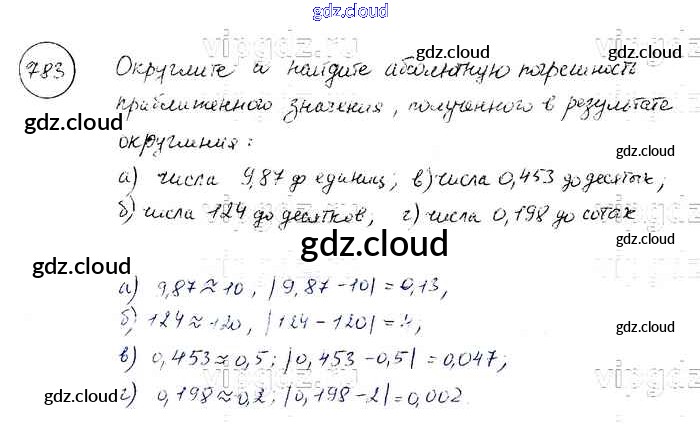 gdz.cloud
vipgdz.ru
783 Округлите и найдите абсолютную погрешность
gdz.cloud
приближенного значения, полученного в результате
gdz.cloud gdz.cloud
округления:
gdz.cloud
а) числа 9,87 до единиц; в) числа 0,453 до десятых;
б) числа 124 до десятков; г) числа 0,198 до сотах
gdz.cloud
gdz.cloud
gdz.cloud
а) 9,87 ≈ 10, |9,87 - 10| = 0,13,
gdz.cloud
б) 124 ≈ 120, |124 - 120| = 4;
в) 0,453 ≈ 0,5; |0,453 - 0,5| = 0,047;
gdz.cloud
г) 0,198 ≈ 0,2; |0,198 - 2| = 0,002
gdz.cloud gdz.cloud